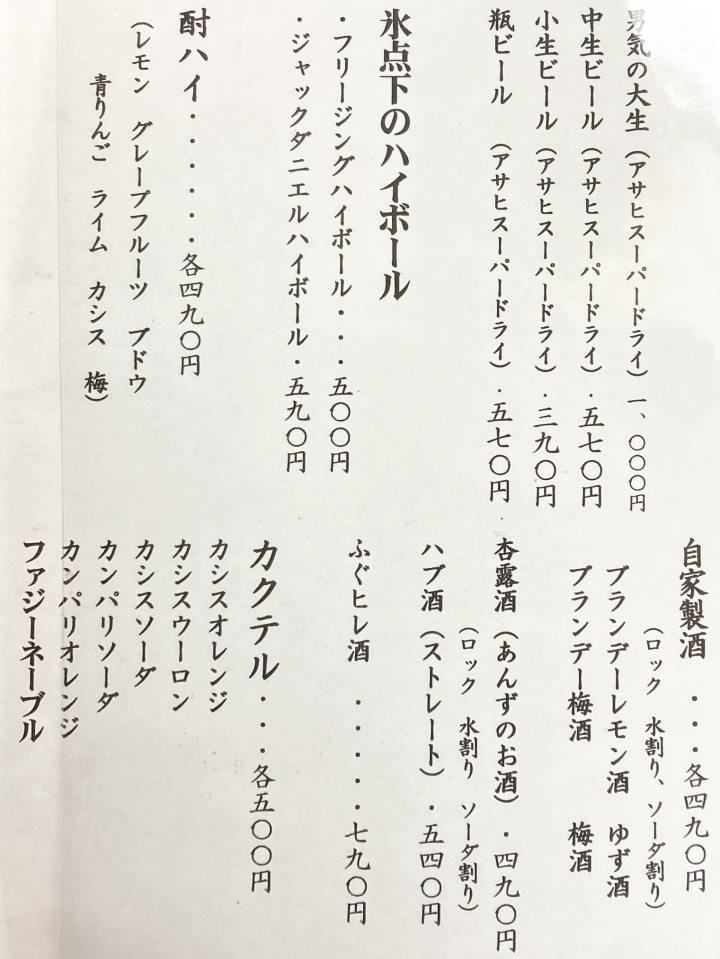 男気の大生（アサヒスーパードライ）一、〇〇〇円
中生ビール（アサヒスーパードライ）・五七〇円
小生ビール（アサヒスーパードライ）・三九〇円
瓶ビール　（アサヒスーパードライ）・五七〇円
氷点下のハイボール
・フリージングハイボール・・・五〇〇円
・ジャックダニエルハイボール・五九〇円
酎ハイ・・・・・・各四九〇円
（レモン　グレープフルーツ　ブドウ
青りんご　ライム　カシス　梅）
自家製酒　・・・各四九〇円
（ロック　水割り、ソーダ割り）
ブランデーレモン酒　ゆず酒
ブランデー梅酒　　梅酒
杏露酒（あんずのお酒）・四九〇円
（ロック　水割り　ソーダ割り）
ハブ酒（ストレート）・五四〇円
ふぐヒレ酒　・・・・・七九〇円
カクテル・・・各五〇〇円
カシスオレンジ
カシスウーロン
カシスソーダ
カンパリソーダ
カンパリオレンジ
ファジーネーブル